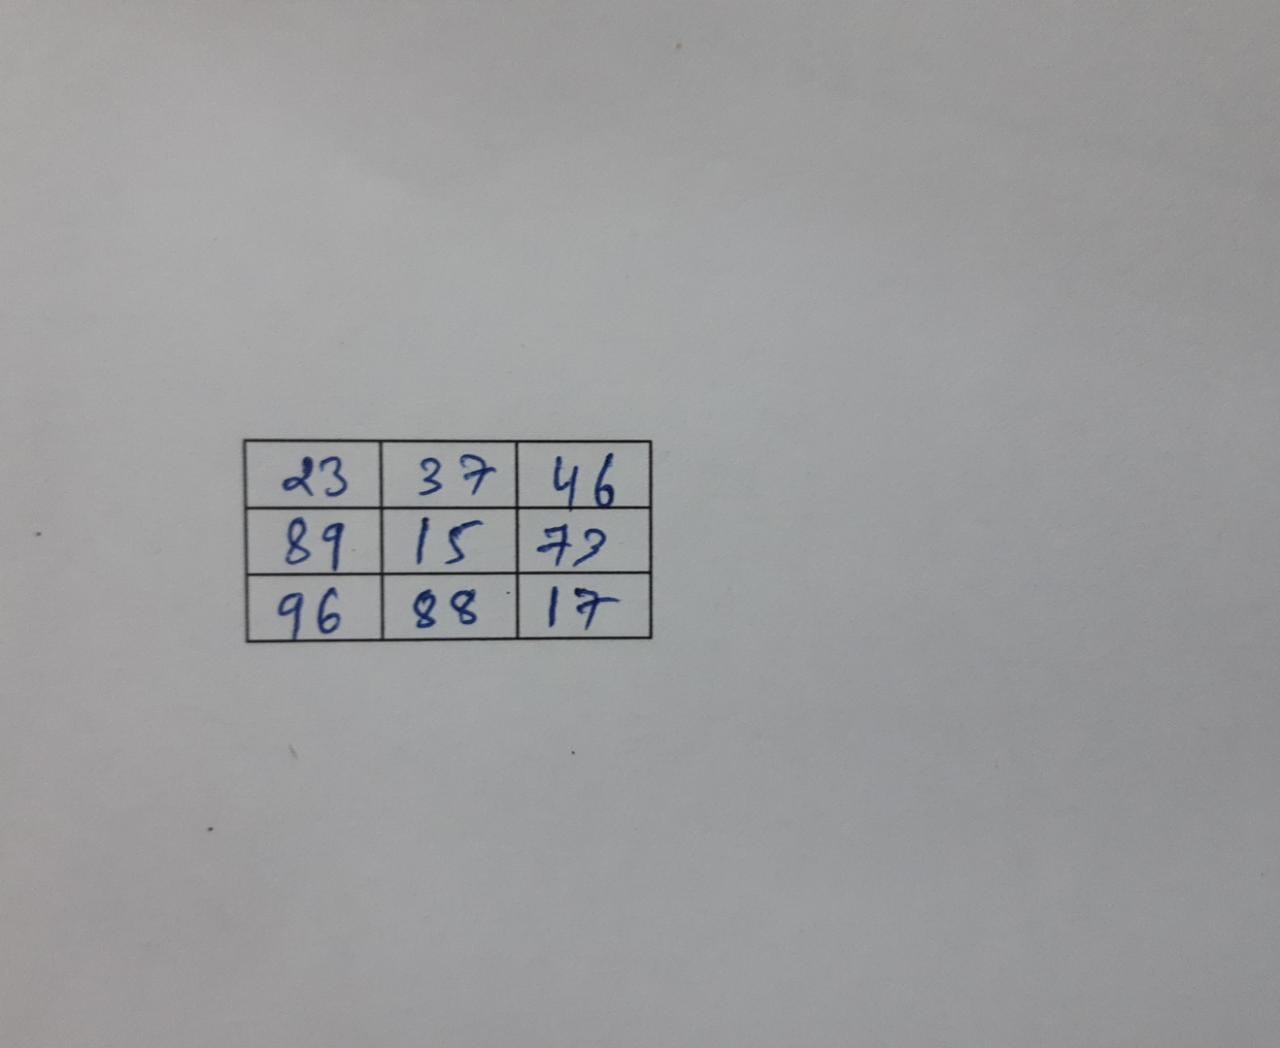 23 37 46
89 15 73
96 88 17